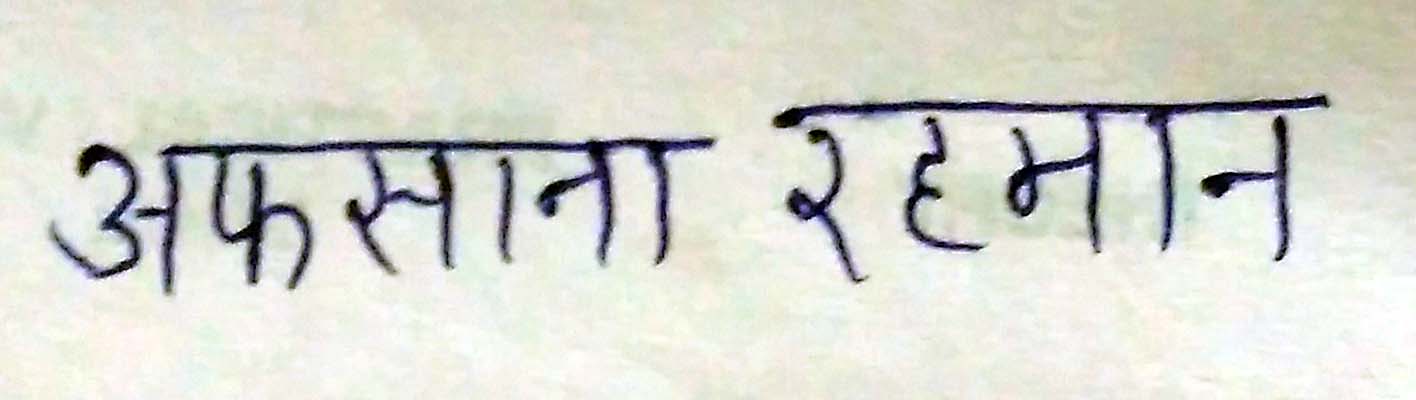 अफसाना रहमान